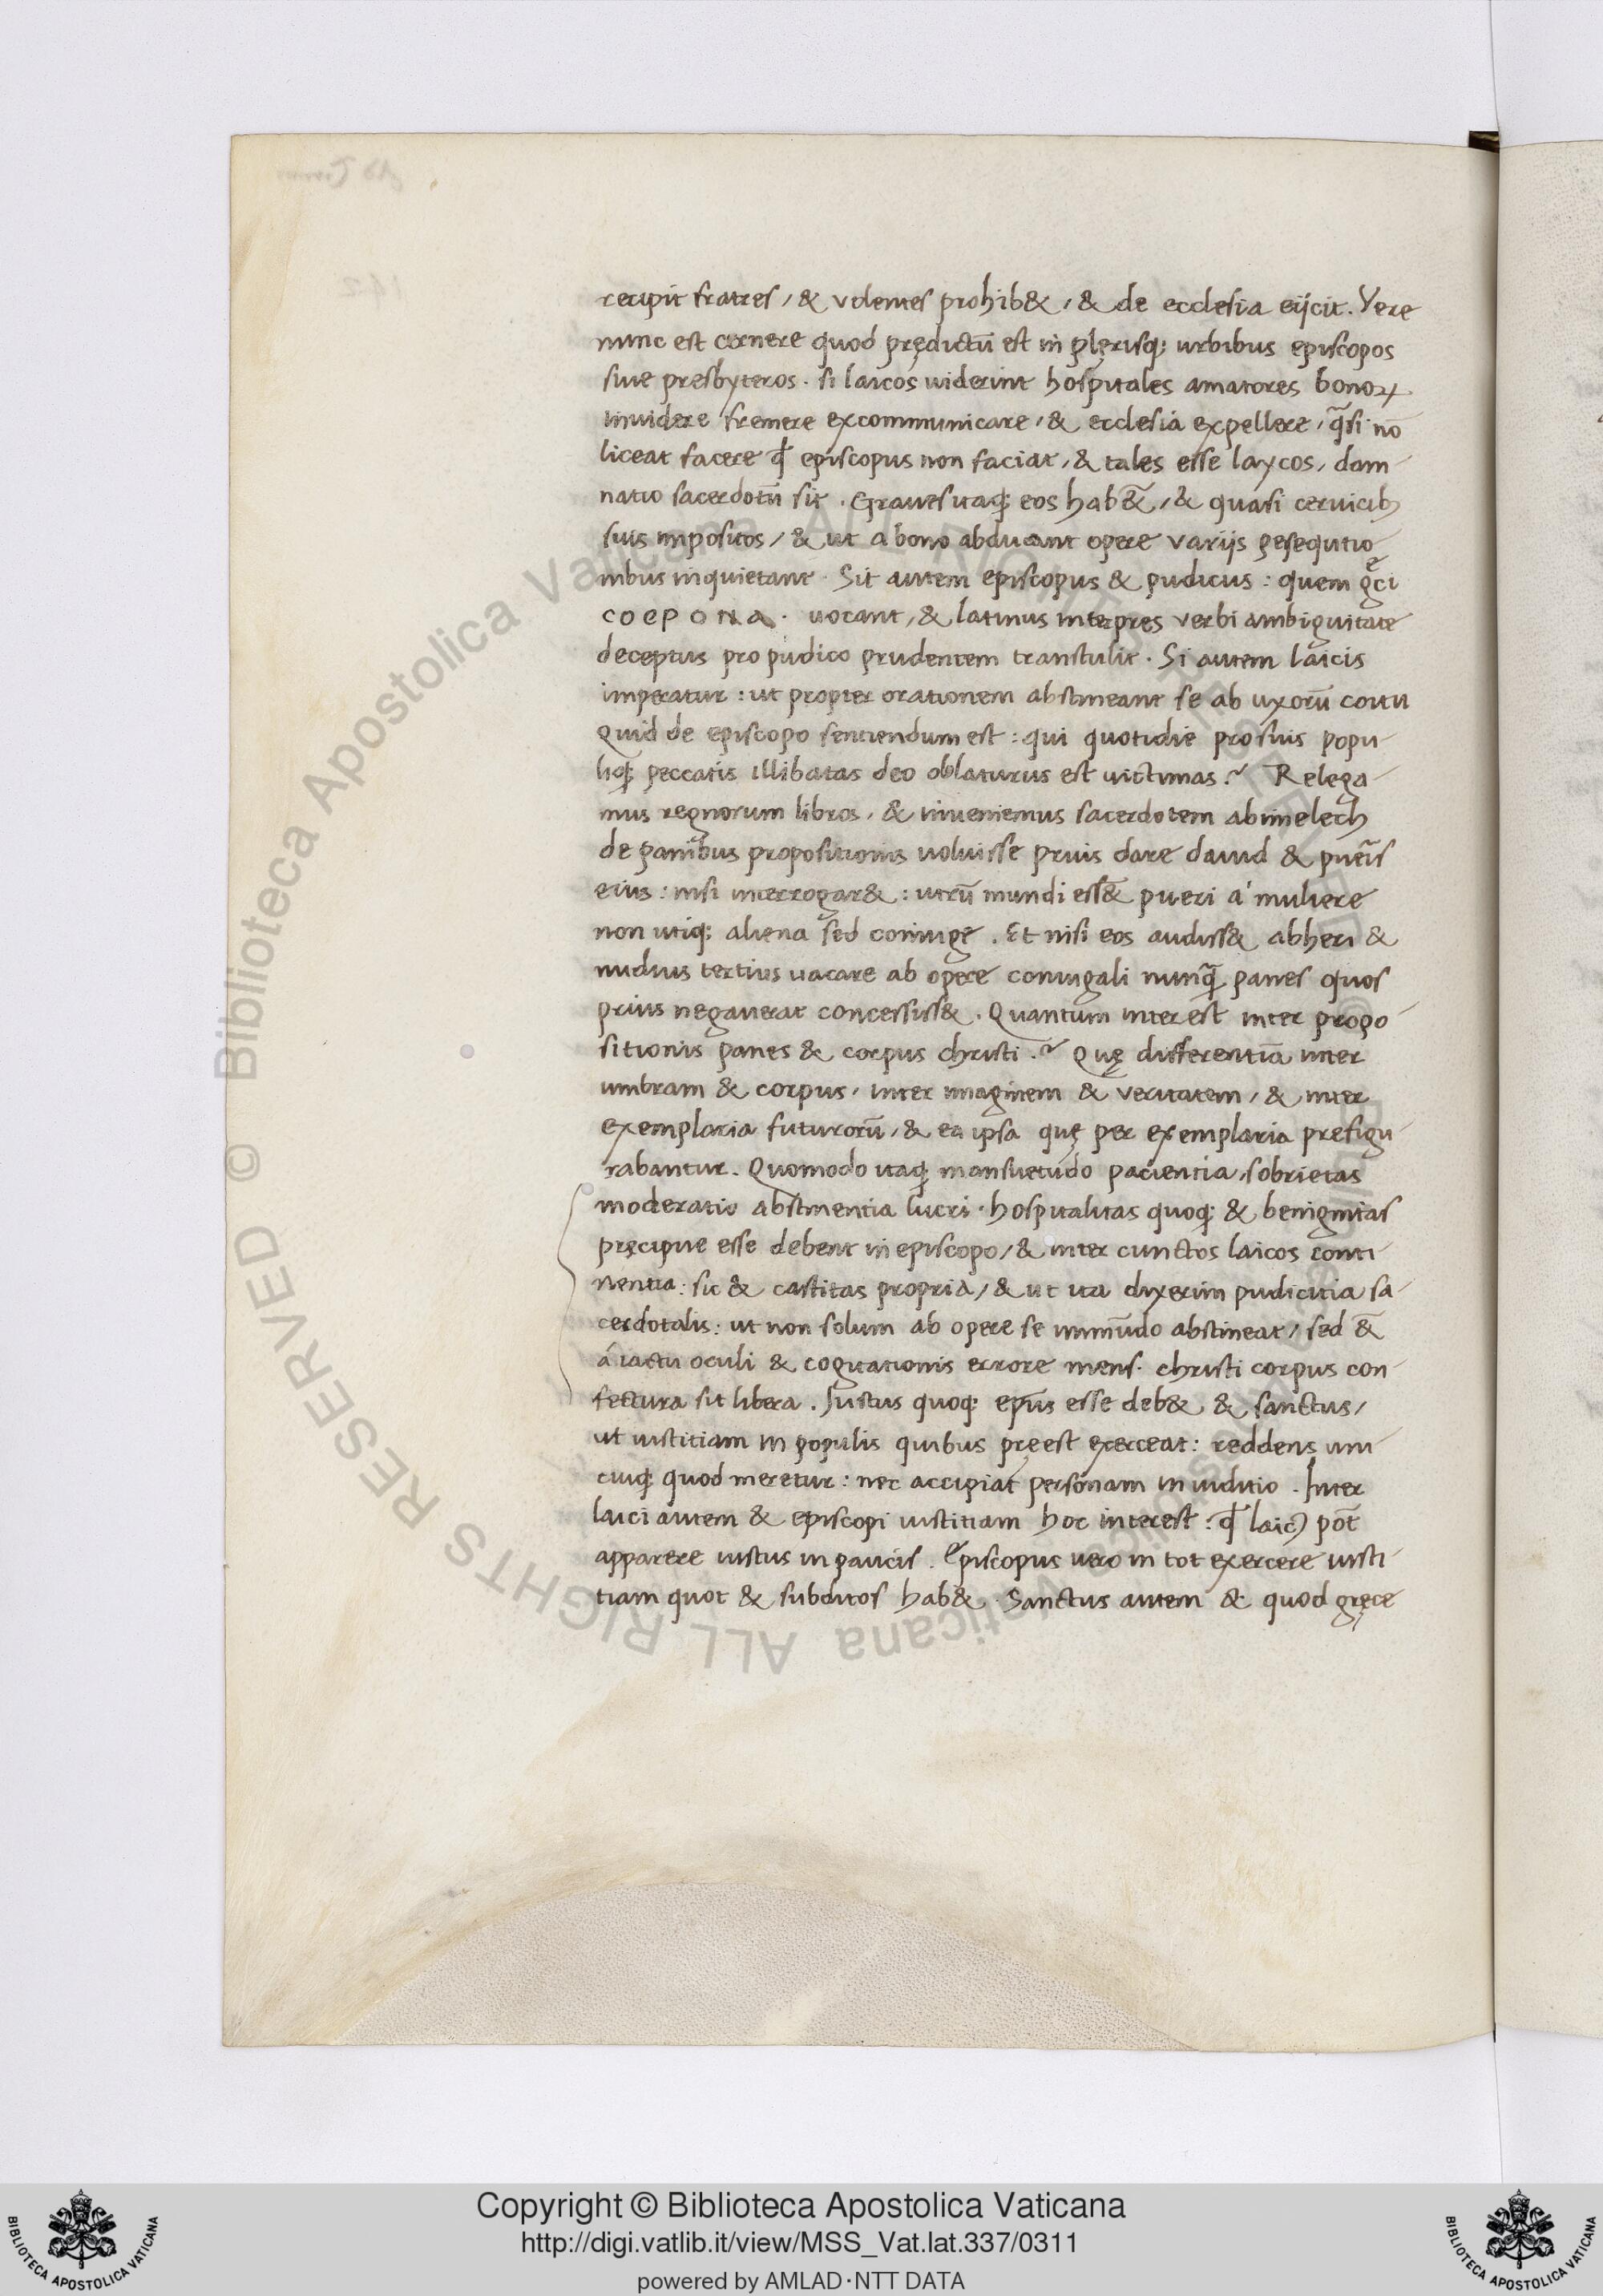 recipit fratres, & volentes prohib&, & de ecclesia eijcit. Vere
nunc est cernere quod prędictū est in plerisq; urbibus episcopos
siue presbyteros. si laicos uiderint hospitales amatores bonoꝝ
inuidere fremere excommunicare, & ecclesia expellere, q̃si nō
liceat facere qđ episcopus non faciat, & tales esse laycos, dam-
natio sacerdotū sit. Graues itaq; eos hab&̃, & quasi ceruicib;
suis impositos, & ut a bono abducant opere varijs ꝑsequtio-
nibus inquietant. Sit autem episcopus & pudicus: quem gr̃ci
COEPONA. uocant, & latinus interpres verbi ambiguitate
deceptus pro pudico prudentem transtulit. Si autem laicis
imperatur: ut propter orationem abstineant se ab uxorū coitu
Quid de episcopo sentiendum est: qui quotidie pro suis popu-
liq; peccatis illibatas deo oblaturus est uictimas? Relega-
mus regnorum libros, & inueniemus sacerdotem abimelech
de panibus propositionis noluisse prius dare dauid & puer̃is
eius: nisi interrogar&: utrū mundi ess&̃ pueri a' muliere
non utiq; aliena sed coniuge. Et nisi eos audiss& ab heri &
nudius tertius uacare ab opere coniugali nunq̃ panes quos
prius negauerat concessiss&. Quantum interest inter propo-
sitionis panes & corpus christi? Quę differentia inter
umbram & corpus, inter imaginem & veritatem, & inter
exemplaria futurorū, & ea ipsa quę per exemplaria prefigu-
rabantur. Quomodo itaq; mansuetudo pacientia, sobrietas
moderatio abstinentia lucri. hospitalitas quoq; & benignitas
pręcipue esse debent in episcopo, & inter cunctos laicos conti-
nentia: sic & castitas propria, & ut ita dixerim pudicitia sa-
cerdotalis: ut non solum ab opere se immūdo abstineat, sed &̃
á iactu oculi & cogitationis errore mens. christi corpus con-
fectura sit libera. Justus quoq; ep̃us esse deb& & sanctus,
ut iustitiam in populis quibus pręest exerceat: reddens uni-
cuiq; quod meretur: nec accipiat personam in iuditio. Inter
laici autem & episcopi iustitiam hoc interest: qđ laicꝰ pōt
apparere iustus in paucis. Episcopus uero in tot exercere iusti-
tiam quot & subditos hab&. Sanctus autem & quod gręce
Copyright © Biblioteca Apostolica Vaticana
http://digi.vatlib.it/view/MSS_Vat.lat.337/0311
powered by AMLAD·NTT DATA
BIBLIOTECA APOSTOLICA VATICANA
BIBLIOTECA APOSTOLICA VATICANA